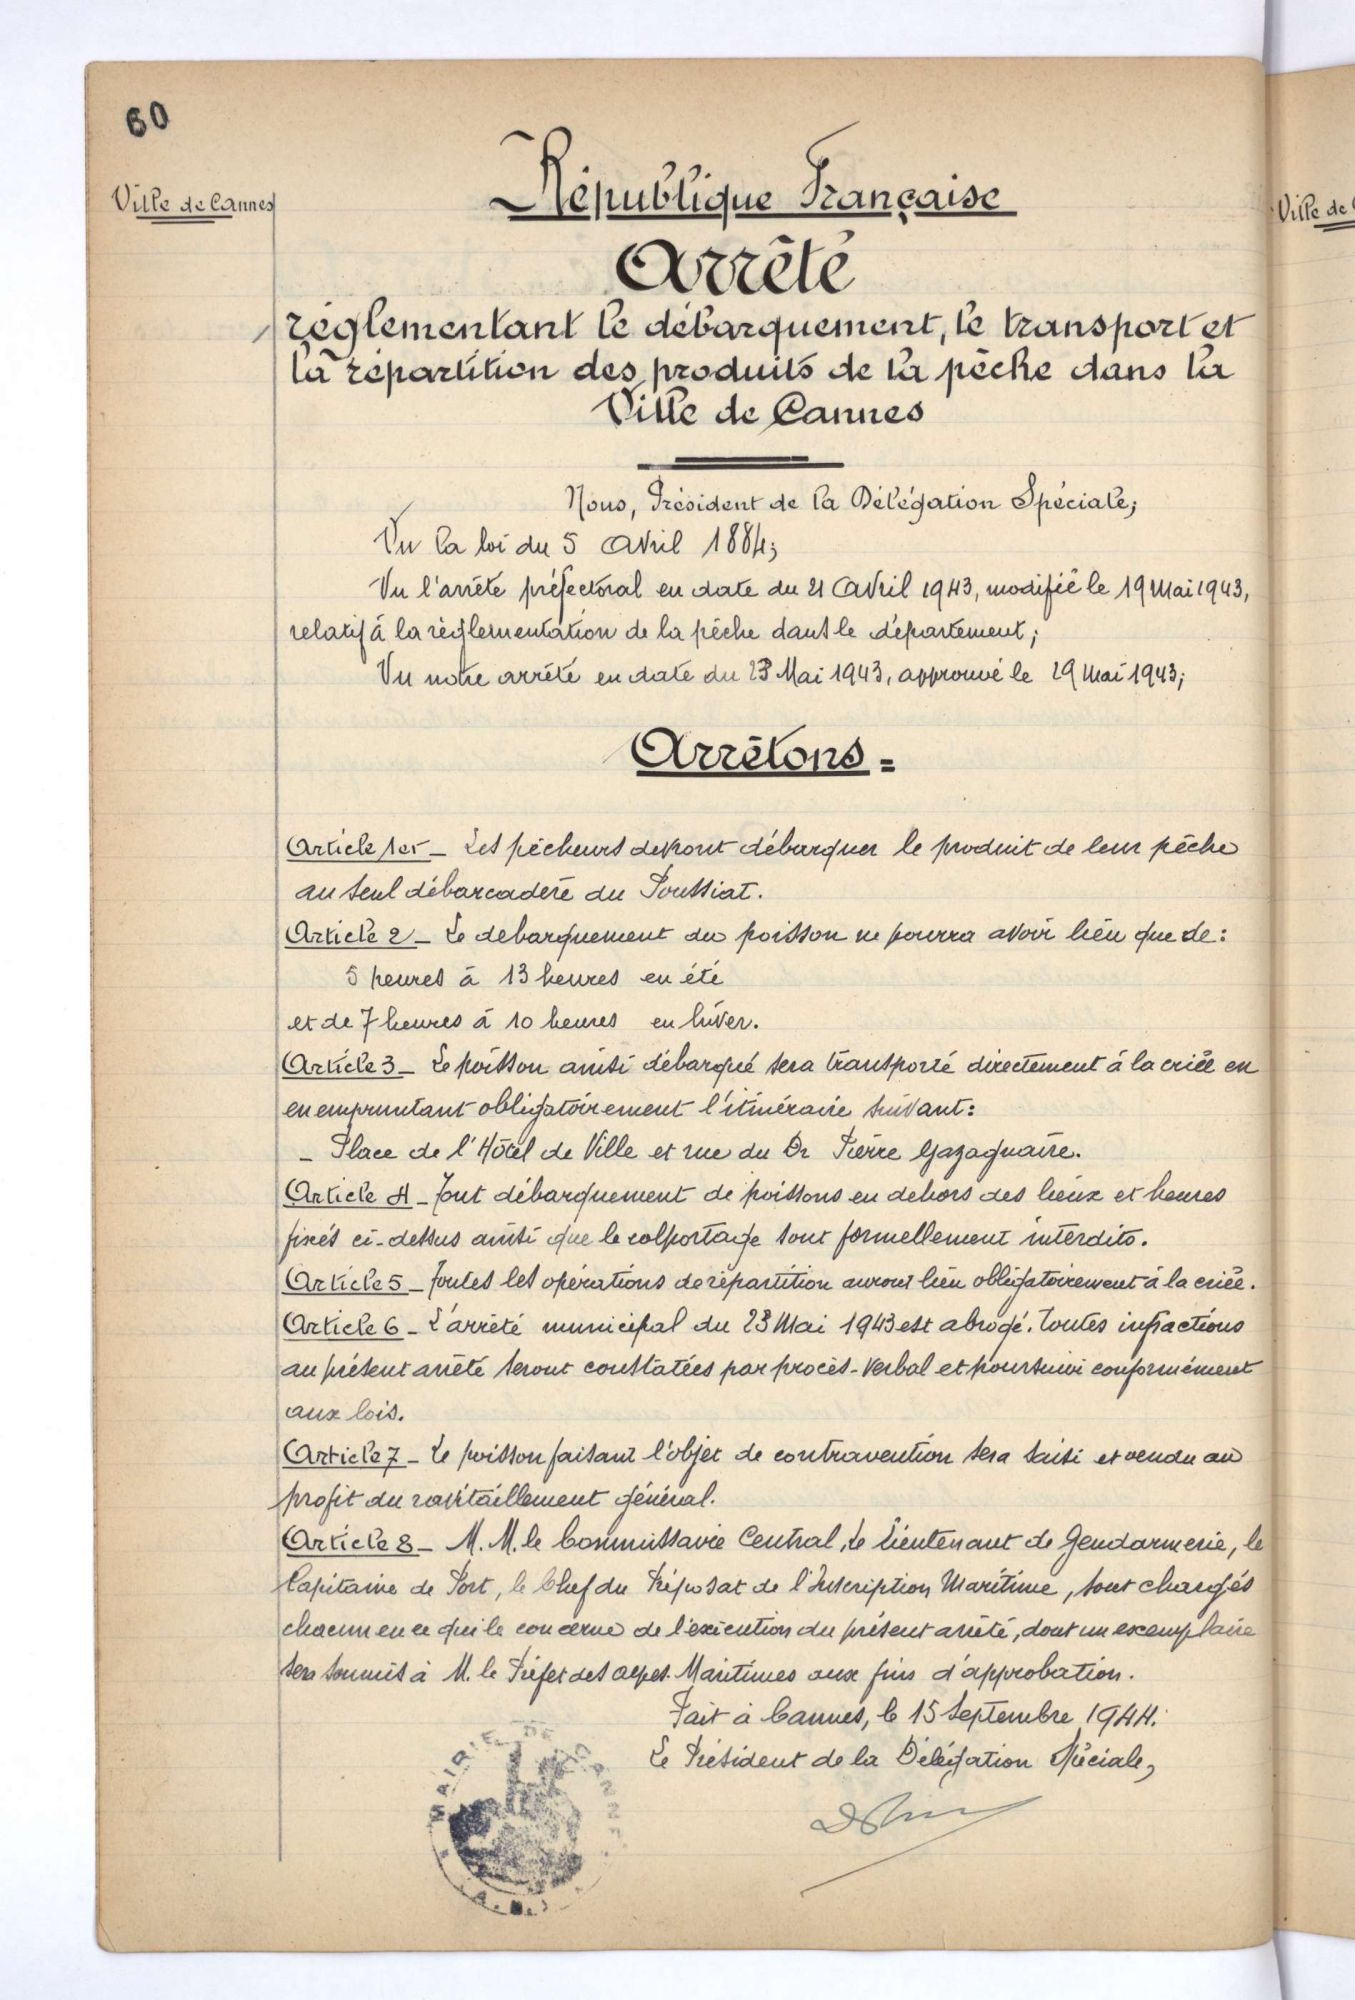 60
Ville de Cannes
République Française
Arrêté
réglementant le débarquement, le transport et
la répartition des produits de la pêche dans la
Ville de Cannes
Nous, Président de la Délégation Spéciale;
Vu la loi du 5 Avril 1884;
Vu l'arrêté préfectoral en date du 21 Avril 1943, modifié le 19 Mai 1943,
relatif à la règlementation de la pêche dans le département;
Vu notre arrêté en date du 23 Mai 1943, approuvé le 29 Mai 1943;
Arrêtons =
Article 1er - Les pêcheurs devront débarquer le produit de leur pêche
au seul débarcadère du Poussiat.
Article 2 - Le debarquement du poisson ne pourra avoir lieu que de:
5 heures à 13 heures en été
et de 7 heures à 10 heures en hiver.
Article 3 - Le poisson ainsi débarqué sera transporté directement à la criée en
en empruntant obligatoirement l'itinéraire suivant:
- Place de l'Hôtel de Ville et rue du Dr Pierre Gazagnaire.
Article 4 - Tout débarquement de poissons en dehors des lieux et heures
fixés ci-dessus ainsi que le colportage sont formellement interdits.
Article 5 - Toutes les opérations de répartition auront lieu obligatoirement à la criée.
Article 6 - L'arrêté municipal du 23 Mai 1943 est abrogé. Toutes infractions
au présent arrêté seront constatées par procès-verbal et poursuivi conformément
aux lois.
Article 7 - Le poisson faisant l'objet de contravention sera saisi et vendu au
profit du ravitaillement général.
Article 8 - M. M. le Commissaire Central, le Lieutenant de Gendarmerie, le
Capitaine de Port, le Chef du Préposat de l'Inscription Maritime, sont chargés
chacun en ce qui le concerne de l'exécution du présent arrêté, dont un exemplaire
sera soumis à M. le Préfet des Alpes-Maritimes aux fins d'approbation.
Fait à Cannes, le 15 Septembre 1944.
Le Président de la Délégation Spéciale,
MAIRIE DE CANNES
Ville de